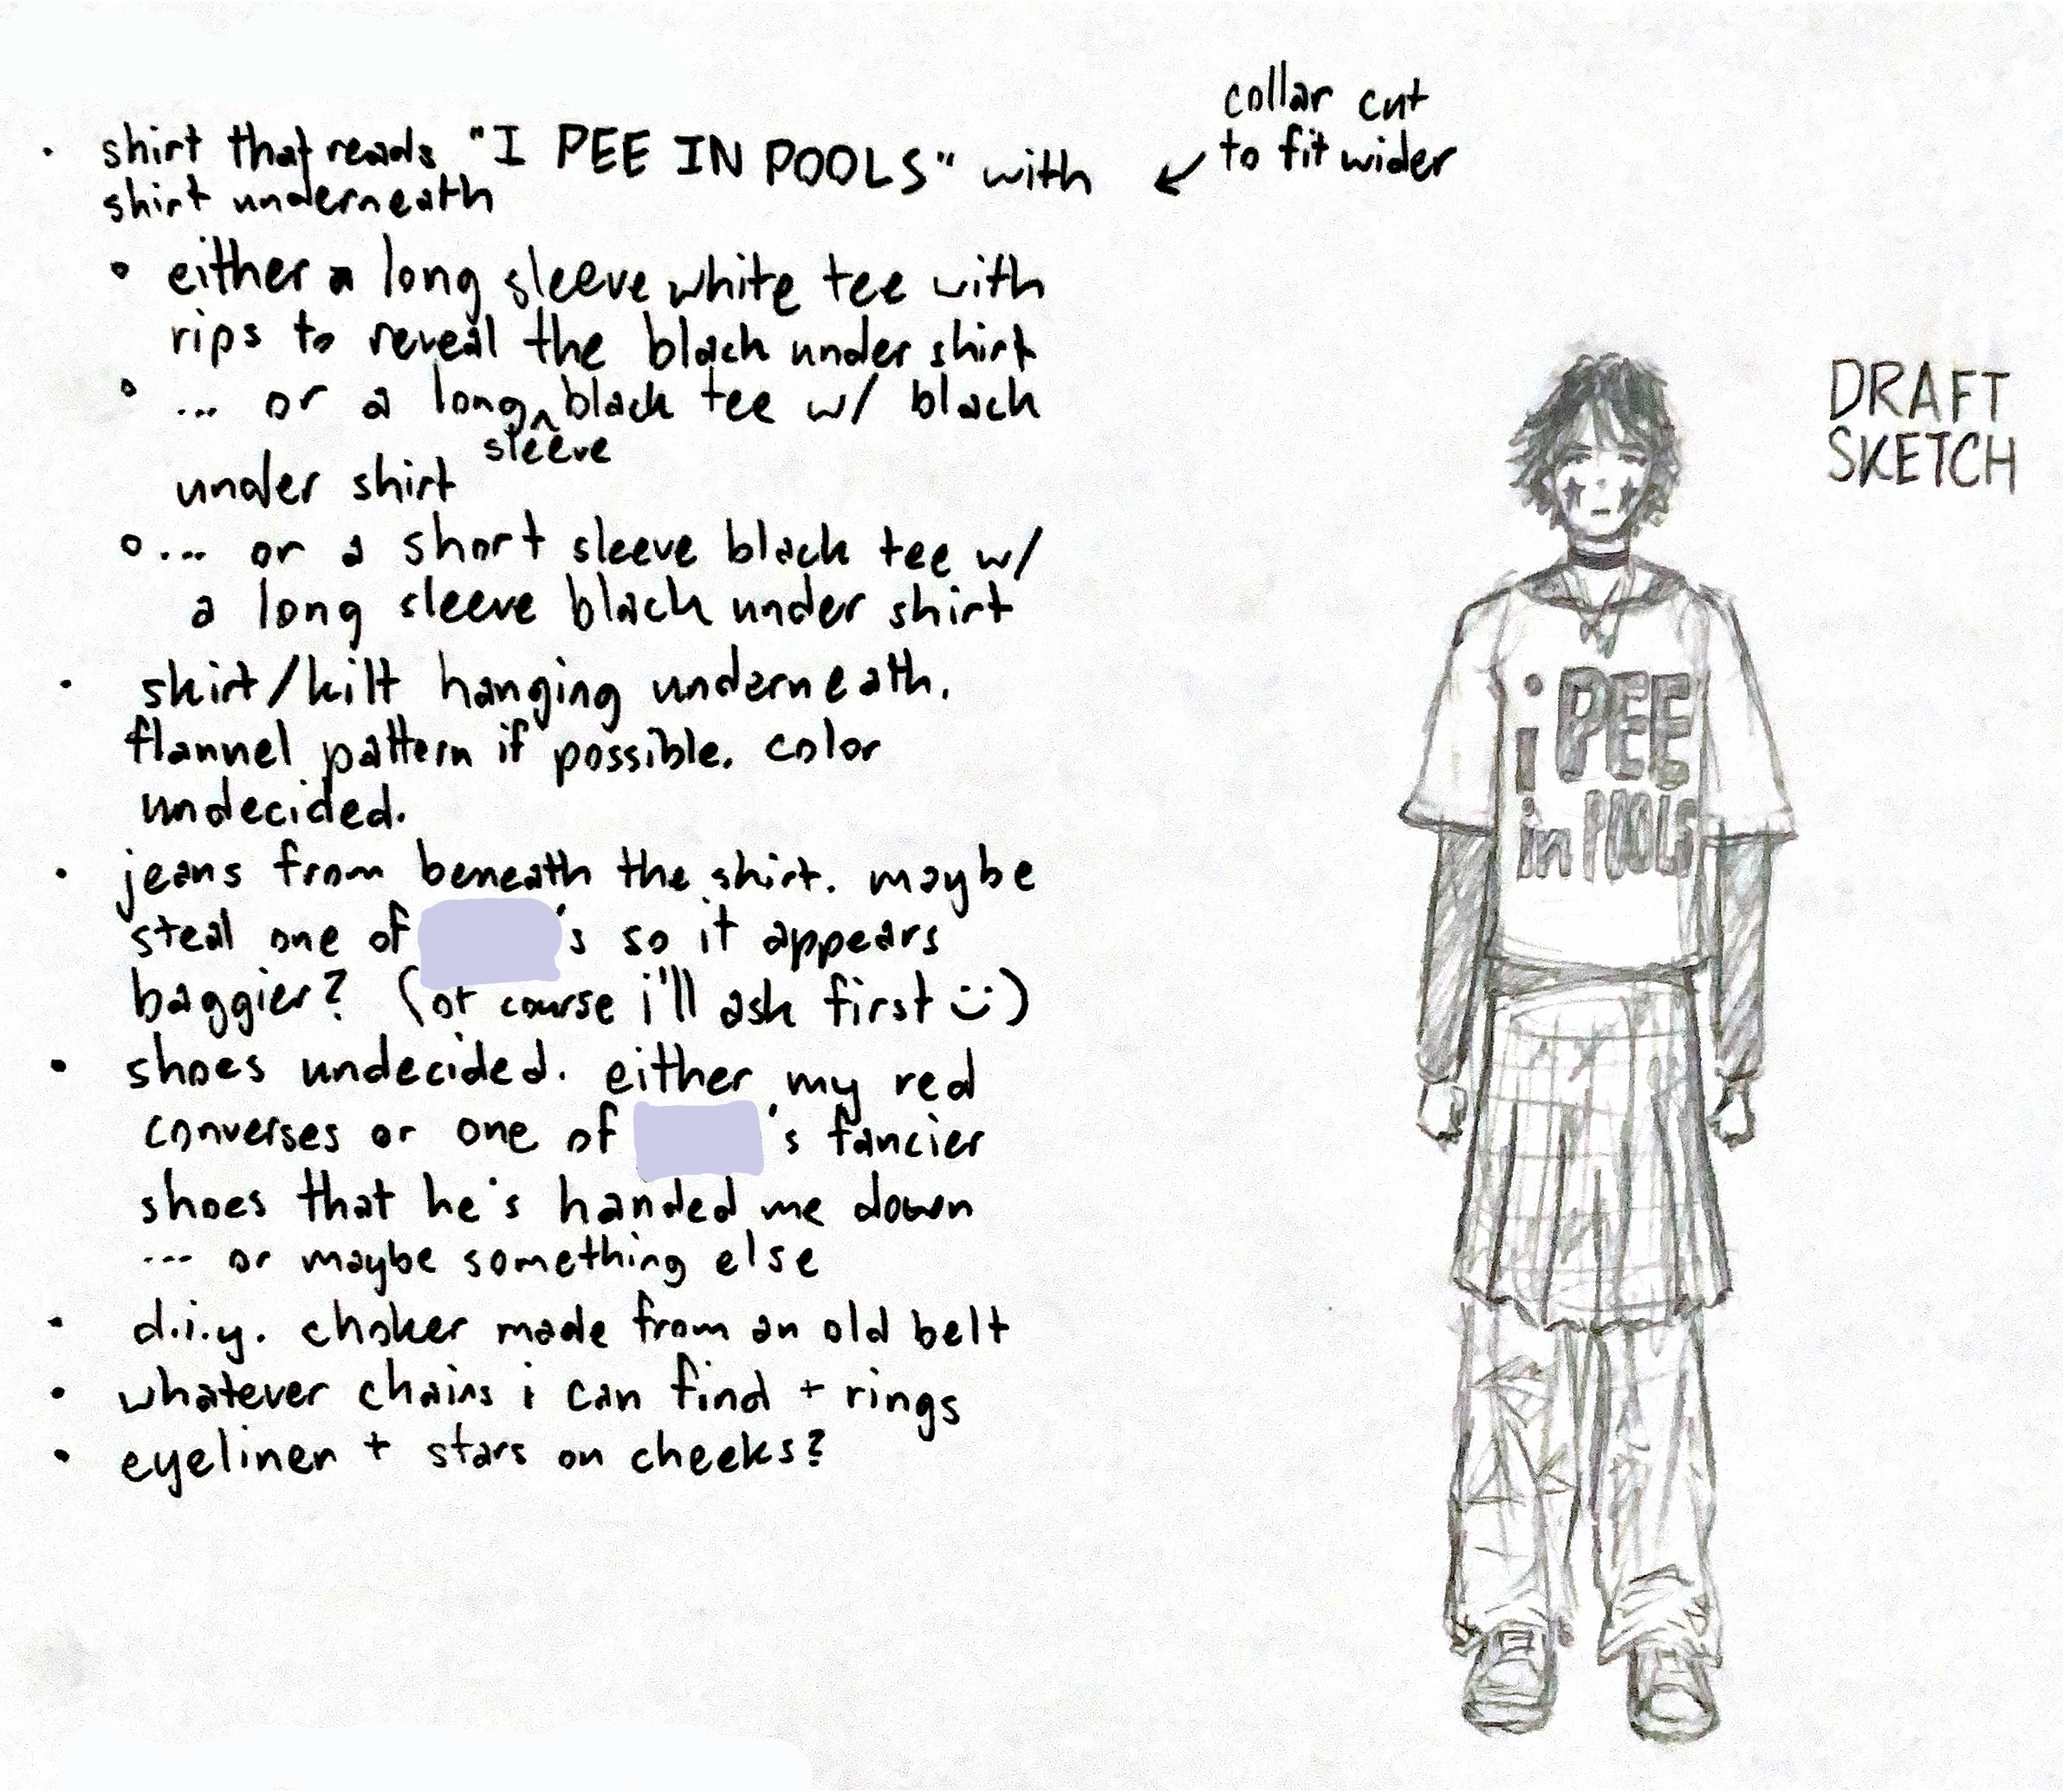 collar cut
to fit wider
• shirt that reads "I PEE IN POOLS" with
shirt underneath
◦ either a long sleeve white tee with
rips to reveal the black under shirt
◦ ... or a long sleeve black tee w/ black
under shirt
◦ ... or a short sleeve black tee w/
a long sleeve black under shirt
• skirt/kilt hanging underneath.
flannel pattern if possible. color
undecided.
• jeans from beneath the shirt. maybe
steal one of 's so it appears
baggier? (of course i'll ask first :))
• shoes undecided. either my red
converses or one of 's fancier
shoes that he's handed me down
... or maybe something else
• d.i.y. choker made from an old belt
• whatever chains i can find + rings
• eyeliner + stars on cheeks?
DRAFT
SKETCH
i PEE
in POOLS